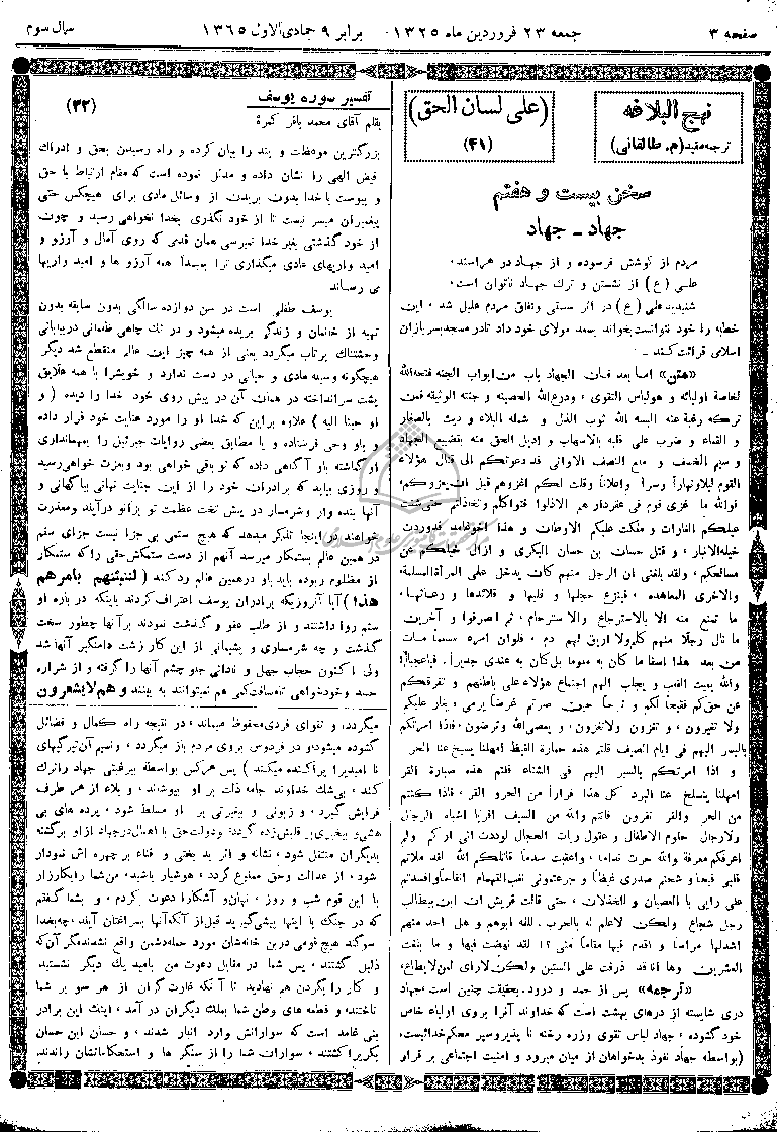 صفحه ۳
جمعه ۲۳ فروردین ماه ۱۳۲۵ برابر ۹ جمادی‌الاول ۱۳۶۵
سال سوم
نهج البلاغه
ترجمه مفید (م. طالقانی)
(علی لسان الحق)
(۴۱)
سخن بیست و هفتم
جهاد ـ جهاد
مردم از کوشش فرسوده و از جهاد در هراسند،
علی (ع) از نشستن و ترک جهاد ناتوان است،
شنیدید علی (ع) در اثر سستی و نفاق مردم علیل شد، این
خطبه را خود نتوانست بخواند بسعد مولای خود داد تا در مسجد بسربازان
اسلامی قرائت کند.
«متن» اما بعد فان الجهاد باب من ابواب الجنه فتحه الله
لخاصة اولیائه و هو لباس التقوی، و درع الله الحصینه و جنته الوثیقه فمن
ترکه رغبة عنه البسه الله ثوب الذل و شمله البلاء و دیث بالصغار
و القماء و ضرب علی قلبه بالاسهاب و ادیل الحق منه بتضییع الجهاد
و سیم الخسف و منع النصف الا وانی قد دعوتکم الی قتال هؤلاء
القوم لیلا و نهاراً و سراً و اعلاناً و قلت لکم اغزوهم قبل ان یغزوکم،
فوالله ما غزی قوم فی عقر دار هم الا ذلوا فتواکلتم و تخاذلتم حتی شنت
علیکم الغارات و ملکت علیکم الاوطان و هذا اخو غامد قد وردت
خیله الانبار، و قتل حسان بن حسان البکری و ازال خیلکم عن
مسالحکم، ولقد بلغنی ان الرجل منهم کان یدخل علی المرأة المسلمة،
والاخری المعاهده، فینتزع حجلها و قلبها و قلائدها و رعاثها،
ما تمنع منه الا بالاسترجاع والاسترحام، ثم انصرفوا و آخرین
ما نال رجلا منهم کلم ولا اریق لهم دم، فلو ان امرء مسلماً مات
من بعد هذا اسفا ما کان به ملوما بل کان به عندی جدیراً، فیا عجباً!
والله یمیت القلب و یجلب الهم اجتماع هؤلاء علی باطلهم و تفرقکم
عن حقکم فقبحاً لکم و ترحاً حین صرتم غرضاً یرمی، یغار علیکم
ولا تغیرون، و تغزون ولا تغزون، و یعصی الله و ترضون، فاذا امرتکم
بالسیر الیهم فی ایام الصیف قلتم هذه حمارة القیظ امهلنا یسبخ عنا الحر
و اذا امرتکم بالسیر الیهم فی الشتاء قلتم هذه صبارة القر
امهلنا ینسلخ عنا البرد کل هذا فراراً من الحر و القر، فاذا کنتم
من الحر والقر تفرون فانتم والله من السیف افر یا اشباه الرجال
ولا رجال حلوم الاطفال و عقول ربات الحجال لوددت انی لم ارکم ولم
اعرفکم معرفة والله جرت ندما، و اعقبت سدماً قاتلکم الله لقد ملاتم
قلبی قیحا و شحنتم صدری غیظاً و جرعتمونی نغب التهمام انفاسا و افسدتم
علی رایی با العصیان و الخذلان، حتی قالت قریش ان ابن بیطالب
رجل شجاع ولکن لا علم له بالحرب. لله ابوهم و هل احد منهم
اشد لها مراساً و اقدم فیها مقاماً منی؟! لقد نهضت فیها و ما بلغت
العشرین وها انا قد ذرفت علی الستین ولکن لا رای لمن لا یطاع،
«ترجمه» پس از حمد و درود. بحقیقت چنین است، جهاد
دری شایسته از درهای بهشت است که خداوند آنرا بروی اولیاء خاص
خود گشوده، جهاد لباس تقوی و زره رخنه نا پذیر و سپر محکم خدا ئیست،
(بواسطه جهاد نفوذ بدخواهان از میان میرود و امنیت اجتماعی بر قرار
میگردد، و تقوای فردی محفوظ میماند، در نتیجه راه کمال و فضائل
گشوده میشود و در فردوس بروی مردم باز میگردد، و نسیم آن تیرگیهای
نا امید را پراکنده میکند) پس هر کس بواسطه بیرغبتی جهاد را ترک
کند، بی‌شک خداوند جامه ذلت بر او بپوشد، و بلاء از هر طرف
فرایش گیرد، و زبونی و بیغیرتی بر او مسلط شود، پرده های بی
هشی و بیخبری بر قلبش زده گردد، و دولت حق با اهمال در جهاد از او برگشته
بدیگران منتقل شود، نشانه و اثر بد بختی و فناء بر چهره اش نمودار
شود، از عدالت و حق ممنوع گردد، هوشیار باشید، من شما را بکارزار
با این قوم شب و روز، نهان و آشکارا دعوت کردم، و بشما گفتم
که در جنگ با اینها پیشی گیرید قبل از آنکه آنها بسراغتان آیند، چه بخدا
سوگند هیچ قومی در بن خانه‌شان مورد حمله دشمن واقع نشدند مگر آن که
ذلیل گشتند، پس شما در مقابل دعوت من بامید یک دیگر نشستید
و کار را بگردن هم نهادید تا آنکه غارت گران از هر سو بر شما
تاختند، و قطعه های وطن شما بملک دیگران در آمد، اینک این برادر
بنی غامد است که سوارانش وارد انبار شدند، و حسان ابن حسان
بکری را کشتند، سواران شما را از سنگر ها و استحکاماتشان راندند،
تفسیر سوره یوسف
(۳۲)
بقلم آقای محمد باقر کمره
بزرگترین موعظت و پند را بیان کرده و راه رسیدن بحق و ادراک
فیض الهی را نشان داده و مدلل نموده است که مقام ارتباط با حق
و پیوست با خدا بدون بریدن از وسائل مادی برای هیچکس حتی
پیغمبران میسر نیست تا از خود نگذری بخدا نخواهی رسید و چون
از خود گذشتی بغیر خدا نمیرسی همان قدمی که روی آمال و آرزو و
امید واریهای مادی میگذاری ترا بمبدأ همه آرزو ها و امید واریها
می رساند
یوسف طفلی است در سن دوازده سالگی بدون سابقه بدون
تهیه از خانمان و زندگی بریده میشود و در تک چاهی ظلمانی در بیابانی
وحشتناک پرتاب میگردد یعنی از همه چیز این عالم منقطع شد دیگر
هیچگونه وسیله مادی و حیاتی در دست ندارد و خویشرا با همه علایق
پشت سر انداخته در همان آن در پیش روی خود خدا را دیده (و
او حینا الیه) علاوه بر این که خدا او را مورد عنایت خود قرار داده
و باو وحی فرستاده و یا مطابق بعضی روایات جبرئیل را بمهمانداری
او گماشته باو آگاهی داده که تو باقی خواهی بود و بعزت خواهی رسید
و روزی بیاید که برادران خود را از این جنایت نهانی بیاگهانی و
آنها بنده وار و شرمسار در پیش تخت عظمت تو بزانو درآیند و معذرت
خواهند در اینجا تذکر میدهد که هیچ ستمی بی جزا نیست جزای ستم
در همین عالم بستمکار میرسد آنهم از دست ستمکش حقی را که ستمکار
از مظلوم ربوده باید باو در همین عالم رد کند (لتنبئنهم بامرهم
هذا) آیا آنروزیکه برادران یوسف اعتراف کردند باینکه در باره او
ستم روا داشتند و از طلب عفو و گذشت نمودند بر آنها چطور سخت
گذشت و چه شرمساری و پشیمانی از این کار زشت دامنگیر آنها شد
ولی اکنون حجاب جهل و نادانی جلو چشم آنها را گرفته و از شراره
حسد و خودخواهی تا مسافت کمی هم نمیتوانند به بینند و هم لایشعرون